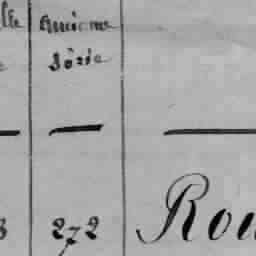 lle Ancienne
e Série
8 272 Rou